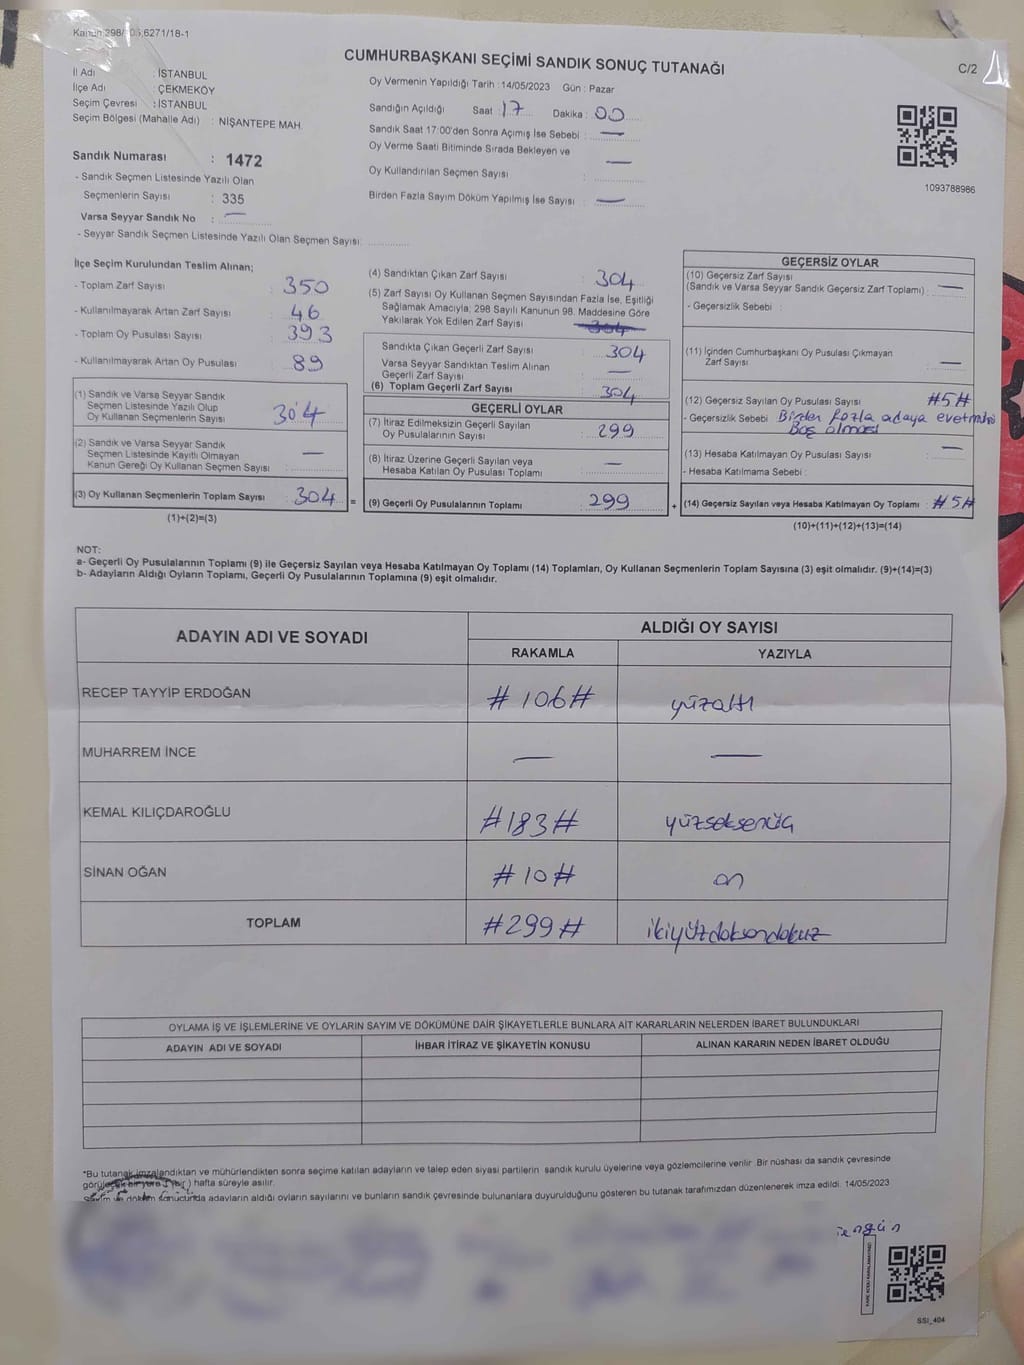 CUMHURBAŞKANI SEÇİMİ SANDIK SONUÇ TUTANAĞI
C/2
İl Adı : İSTANBUL
İlçe Adı : ÇEKMEKÖY
Seçim Çevresi : İSTANBUL
Seçim Bölgesi (Mahalle Adı) : NİŞANTEPE MAH.
Sandık Numarası : 1472
- Sandık Seçmen Listesinde Yazılı Olan
Seçmenlerin Sayısı : 335
Varsa Seyyar Sandık No : —
- Seyyar Sandık Seçmen Listesinde Yazılı Olan Seçmen Sayısı:
Oy Vermenin Yapıldığı Tarih : 14/05/2023 Gün : Pazar
Sandığın Açıldığı Saat : 17 Dakika : 00
Sandık Saat 17:00'den Sonra Açımış İse Sebebi : —
Oy Verme Saati Bitiminde Sırada Bekleyen ve
Oy Kullandırılan Seçmen Sayısı : —
Birden Fazla Sayım Döküm Yapılmış İse Sayısı : —
1093788986
İlçe Seçim Kurulundan Teslim Alınan;
- Toplam Zarf Sayısı : 350
- Kullanılmayarak Artan Zarf Sayısı : 46
- Toplam Oy Pusulası Sayısı : 393
- Kullanılmayarak Artan Oy Pusulası : 89
(1) Sandık ve Varsa Seyyar Sandık
Seçmen Listesinde Yazılı Olup
Oy Kullanan Seçmenlerin Sayısı : 304
(2) Sandık ve Varsa Seyyar Sandık
Seçmen Listesinde Kayıtlı Olmayan
Kanun Gereği Oy Kullanan Seçmen Sayısı : —
(3) Oy Kullanan Seçmenlerin Toplam Sayısı : 304 =
(1)+(2)=(3)
(4) Sandıktan Çıkan Zarf Sayısı : 304
(5) Zarf Sayısı Oy Kullanan Seçmen Sayısından Fazla İse, Eşitliği
Sağlamak Amacıyla; 298 Sayılı Kanunun 98. Maddesine Göre
Yakılarak Yok Edilen Zarf Sayısı : 304
Sandıkta Çıkan Geçerli Zarf Sayısı : 304
Varsa Seyyar Sandıktan Teslim Alınan
Geçerli Zarf Sayısı : —
(6) Toplam Geçerli Zarf Sayısı : 304
GEÇERLİ OYLAR
(7) İtiraz Edilmeksizin Geçerli Sayılan
Oy Pusulalarının Sayısı : 299
(8) İtiraz Üzerine Geçerli Sayılan veya
Hesaba Katılan Oy Pusulası Toplamı : —
(9) Geçerli Oy Pusulalarının Toplamı : 299 +
GEÇERSİZ OYLAR
(10) Geçersiz Zarf Sayısı
(Sandık ve Varsa Seyyar Sandık Geçersiz Zarf Toplamı) : —
- Geçersizlik Sebebi :
(11) İçinden Cumhurbaşkanı Oy Pusulası Çıkmayan
Zarf Sayısı : —
(12) Geçersiz Sayılan Oy Pusulası Sayısı : #5#
- Geçersizlik Sebebi : Birden fazla adaya
Boş olması
(13) Hesaba Katılmayan Oy Pusulası Sayısı : —
- Hesaba Katılmama Sebebi :
(14) Geçersiz Sayılan veya Hesaba Katılmayan Oy Toplamı : #5#
(10)+(11)+(12)+(13)=(14)
NOT:
a- Geçerli Oy Pusulalarının Toplamı (9) ile Geçersiz Sayılan veya Hesaba Katılmayan Oy Toplamı (14) Toplamları, Oy Kullanan Seçmenlerin Toplam Sayısına (3) eşit olmalıdır. (9)+(14)=(3)
b- Adayların Aldığı Oyların Toplamı, Geçerli Oy Pusulalarının Toplamına (9) eşit olmalıdır.
ADAYIN ADI VE SOYADI
ALDIĞI OY SAYISI
RAKAMLA YAZIYLA
RECEP TAYYİP ERDOĞAN #106# yüzaltı
MUHARREM İNCE — —
KEMAL KILIÇDAROĞLU #183# yüzseksenüç
SİNAN OĞAN #10# on
TOPLAM #299# ikiyüzdoksandokuz
OYLAMA İŞ VE İŞLEMLERİNE VE OYLARIN SAYIM VE DÖKÜMÜNE DAİR ŞİKAYETLERLE BUNLARA AİT KARARLARIN NELERDEN İBARET BULUNDUKLARI
ADAYIN ADI VE SOYADI İHBAR İTİRAZ VE ŞİKAYETİN KONUSU ALINAN KARARIN NEDEN İBARET OLDUĞU
*Bu tutanak imzalandıktan ve mühürlendikten sonra seçime katılan adayların ve talep eden siyasi partilerin sandık kurulu üyelerine veya gözlemcilerine verilir. Bir nüshası da sandık çevresinde
görülecek bir yere 1 (bir) hafta süreyle asılır.
Sayım ve döküm sonucunda adayların aldığı oyların sayılarını ve bunların sandık çevresinde bulunanlara duyurulduğunu gösteren bu tutanak tarafımızdan düzenlenerek imza edildi. 14/05/2023
SSI_404